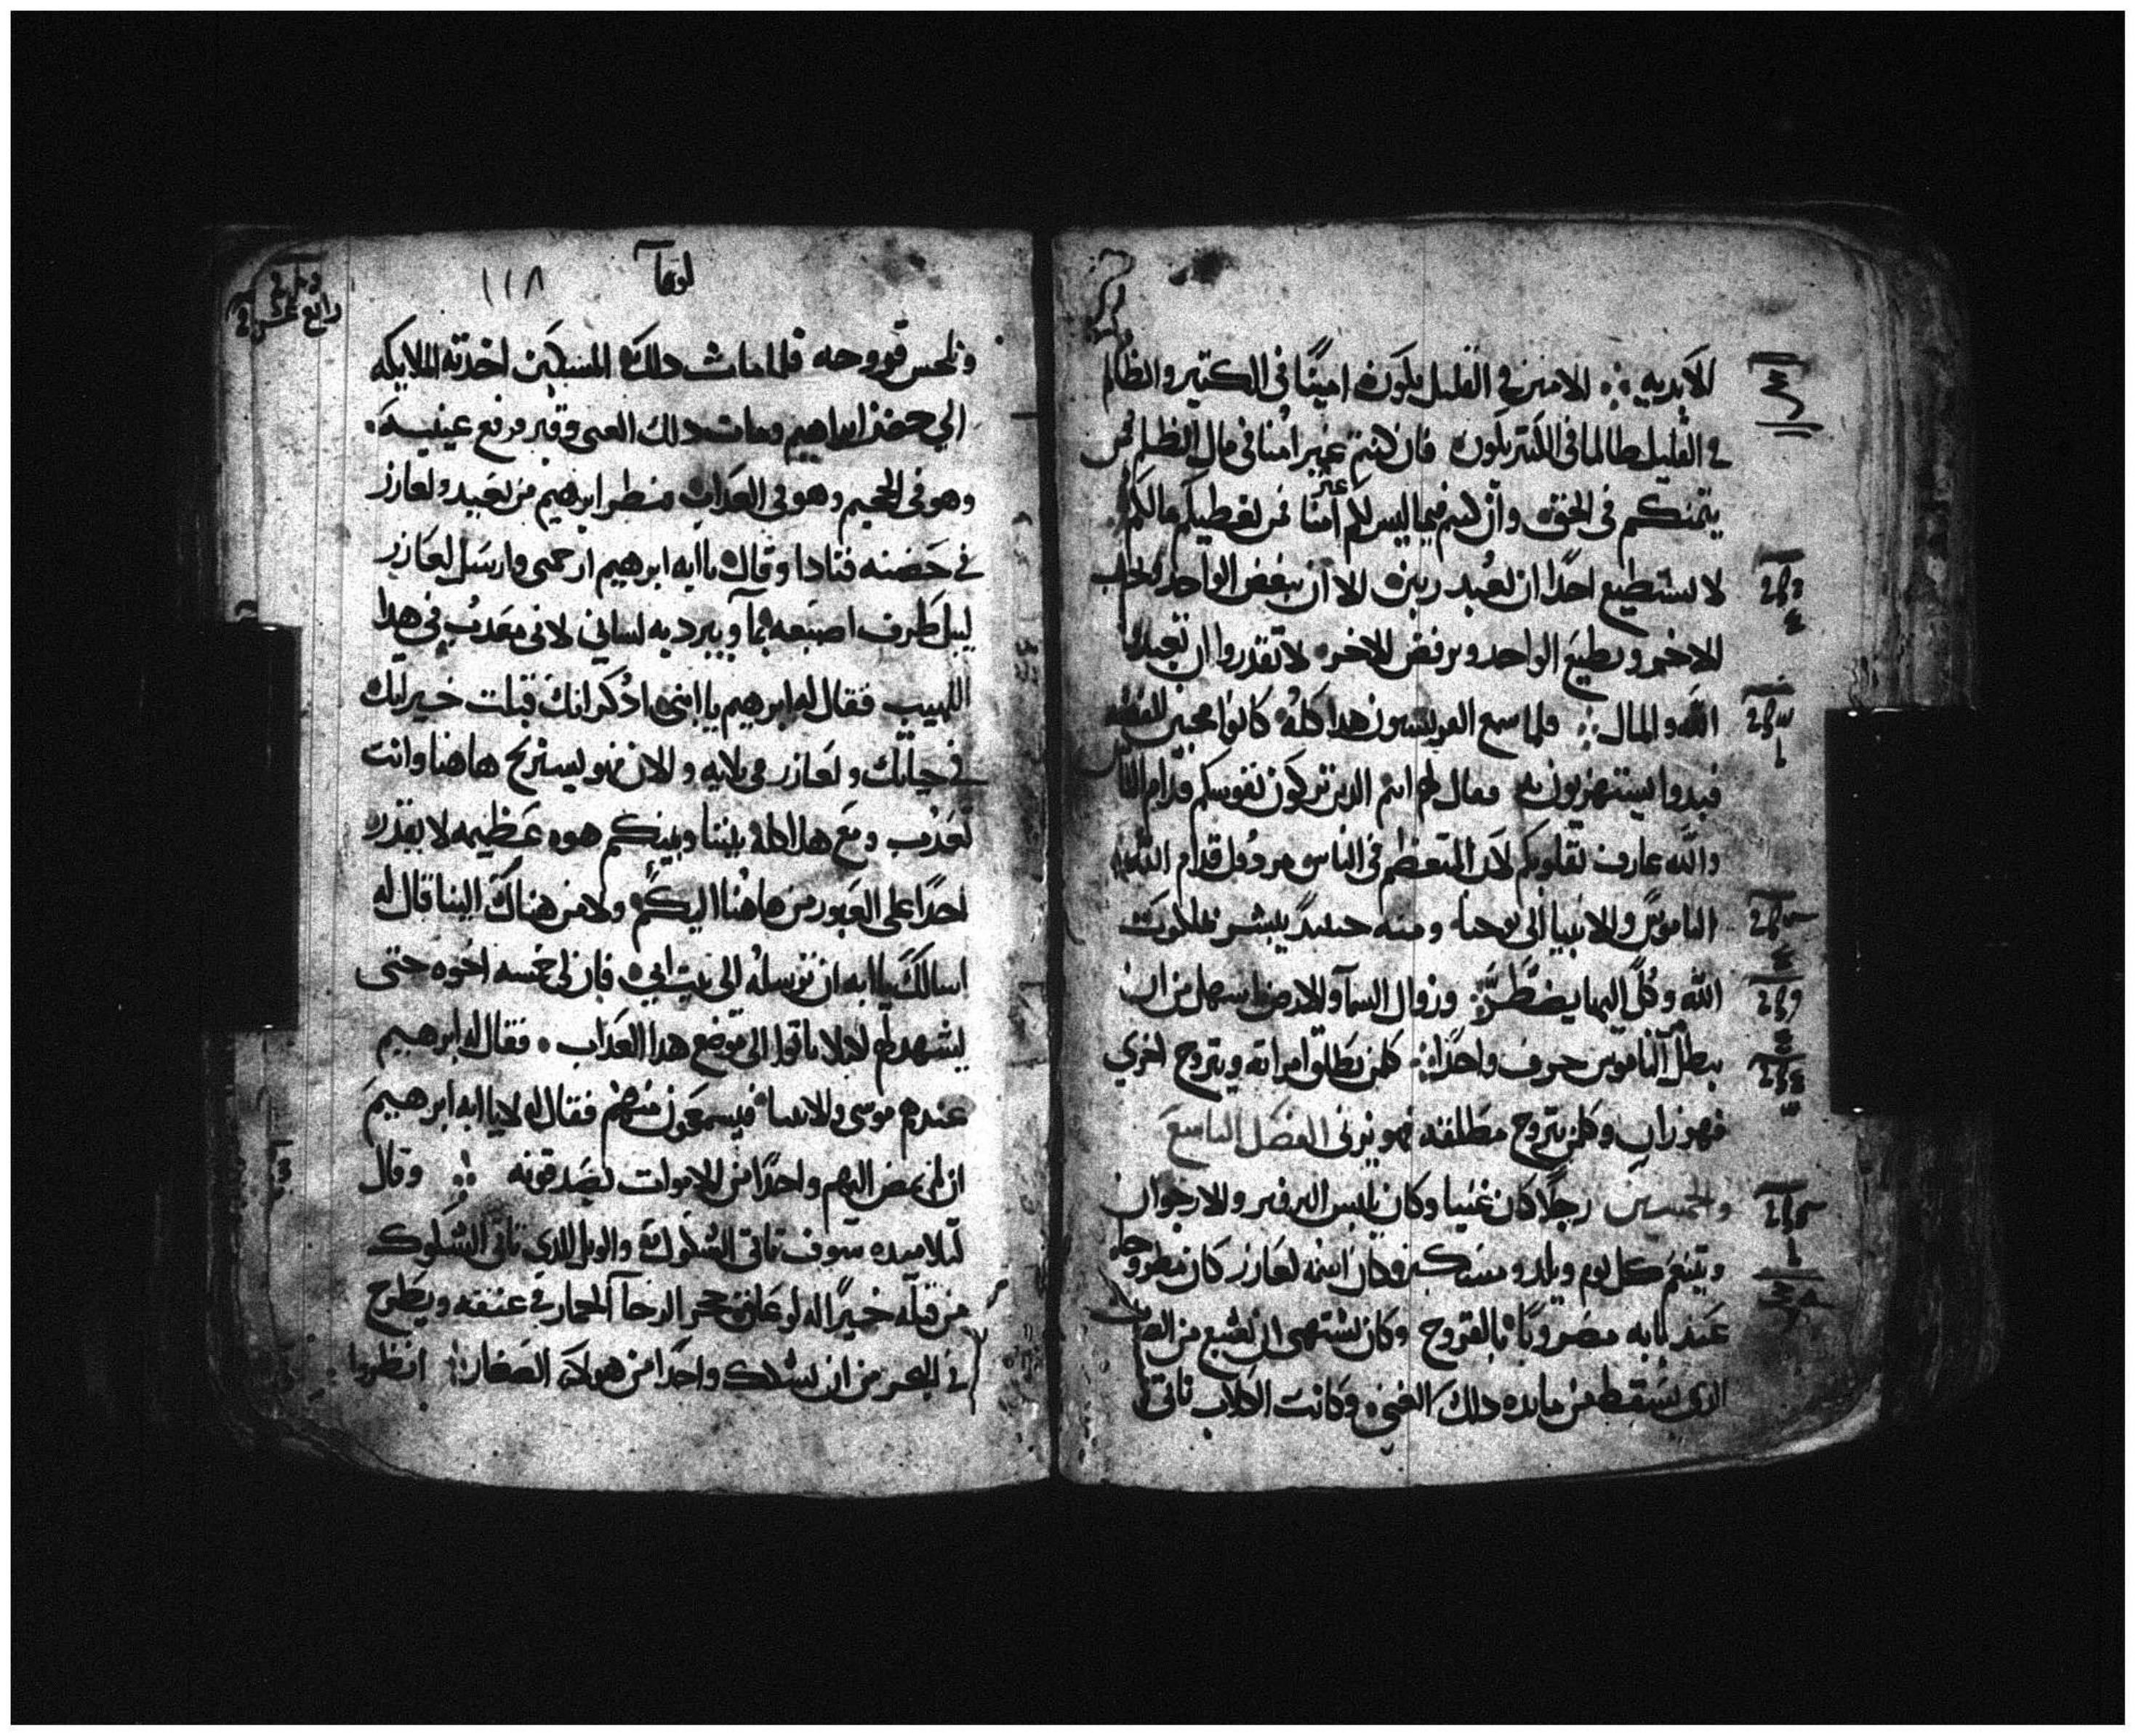 الابديه ∴ الامين في القليل يكون امينًا في الكتير والظالم
في القليل ظالمًا في الكتير يكون فان كنتم غير امنا في مال الظلم فمن
يتمنكم في الحق وان كنتم فيما ليس لكم غير امنا فمن يعطيكم مالكم
لا يستطيع احدًا ان يعبد ربين الا ان يبغض الواحد ويحب
الاخر ويطيع الواحد ويرفض الاخر لا تقدروا ان تعبدوا
الله والمال ∴ فلما سمع الفريسيون هدا كله كانوا محبين للفضه
فبدوا يستهزيون به فقال لهم انتم الدين تزكون نفوسكم قدام الناس
والله عارف بقلوبكم لان المتعظم في الناس مردول قدام الله
الناموس والانبيا الى يوحنا ومنه حينيد يبشر بملكوت
الله وكل اليها يضطر ∴ وزوال السمآ والارض اسهل من ان
يبطل من الناموس حرف واحدًا ∴ كلمن يطلق امراته ويتزوج اخرى
فهو زان وكلمن يتزوج مطلقته فهو يزني الفصل التاسع
والخمسين رجلًا كان غنيا وكان يلبس البرفير والارجوان
ويتنعم كل يوم ويلد ومسكين وكان اسمه لعازر كان مطروحا
عند بابه مضروبًا بالقروح وكان يشتهي ان يشبع من الفتات
الدي يسقط من مايده دلك الغني وكانت الكلاب تاتي
لوقا ١١٨
رابع عشر
وتلحس قروحه فلما مات دلك المسكين اخدته الملايكه
الي حضن ابراهيم ومات دلك الغني وقبر فرفع عينيه
وهو في الجحيم وهو في العداب فنظر ابرهيم من بعيد ولعازر
في حضنه فنادا وقال يا ابه ابرهيم ارحمني وارسل لعازر
ليبل طرف اصبعه بمآ ويبرد به لساني لاني معدب في هدا
اللهيب فقال له ابرهيم يا ابني ادكر انك قبلت خيراتك
في حياتك ولعازر في بلايه والان فهو يستريح هاهنا وانت
تعدب ومع هدا كله بيننا وبينكم هوه عظيمه لا يقدر
احدًا على العبور من هاهنا اليكم ولا من هناك الينا قال له
اسالك يا ابه ان ترسله الى بيت ابي فان لي خمسه اخوه حتى
يشهد لهم ليلا ياتوا الى موضع هدا العداب فقال له ابرهيم
عندهم موسى والانبيا فيسمعون منهم فقال له لا يا ابه ابرهيم
ان لم يمض اليهم واحدًا من الاموات لا يصدقونه ∴ وقال
لتلاميده سوف تاتي الشكوك والويل للدي تاتي الشكوك
من قبله خيرًا له لو علق حجر الرحا الحمار في عنقه ويطرح
في البحر من ان يشكك واحدًا من هولآ الصغار ∴ انظروا